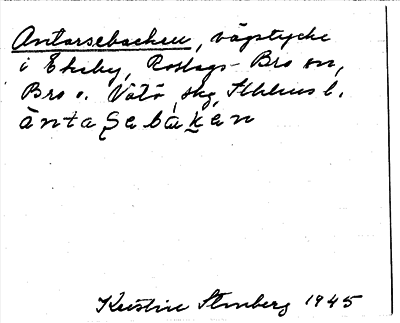 Antarsebacken, vägstycke
i Ekeby, Roslags-Bro sn,
Bro o. Vätö skg, Sthlms l.
ànta ʂebàken
Kerstin Stenberg 1945